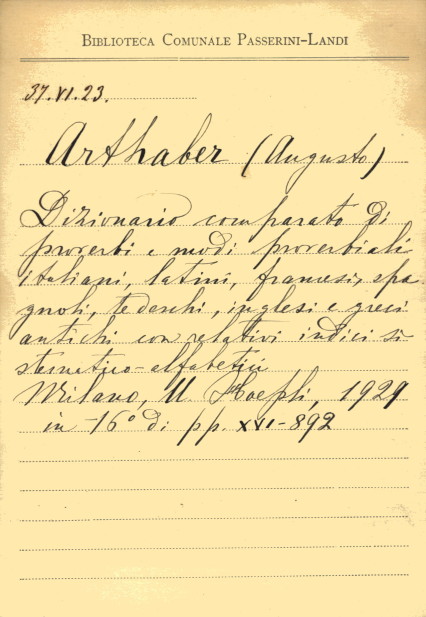 BIBLIOTECA COMUNALE PASSERINI-LANDI
37.VI.23.
Arthaber (Augusto)
Dizionario comparato di
proverbi e modi proverbiali
italiani, latini, francesi, spa-
gnoli, tedeschi, inglesi e greci
antichi con relativi indici si-
stematico-alfabetici
Milano, U. Hoepli, 1929
in-16° di pp. XVI-892